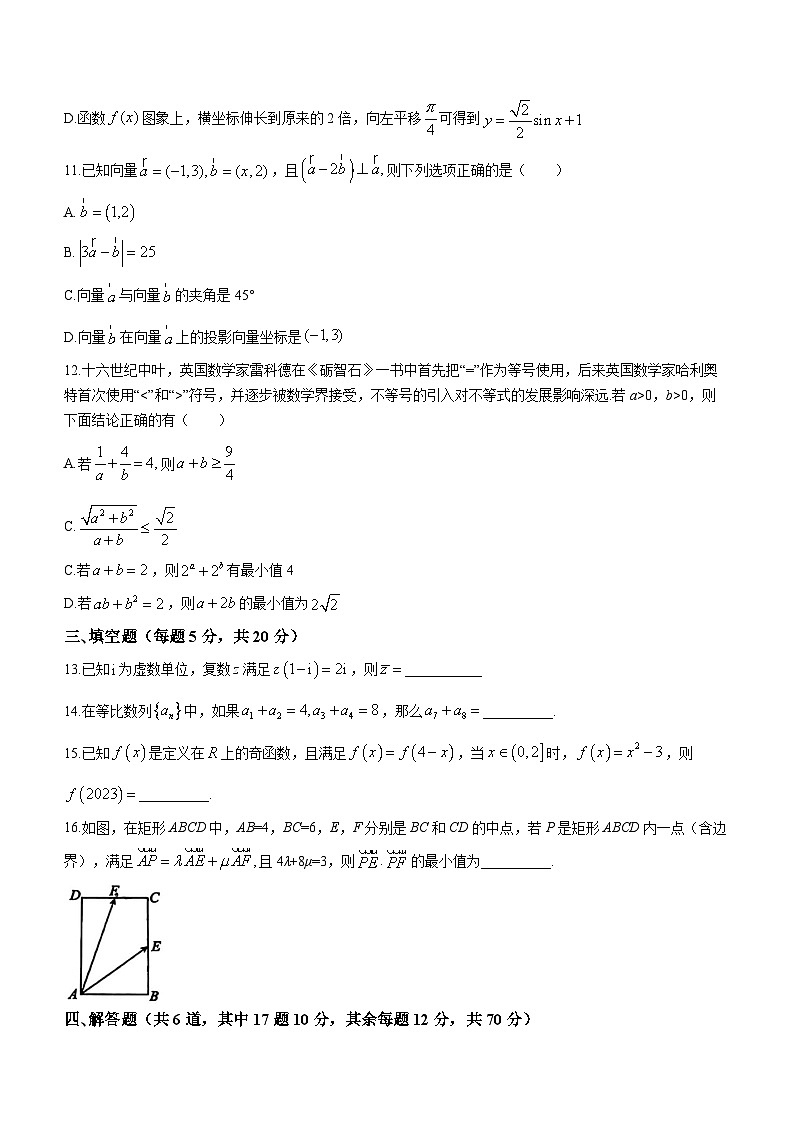 D.函数 f(x) 图象上，横坐标伸长到原来的2倍，向左平移 π/4 可得到 y = √2/2 sin x + 1
11.已知向量 a = (−1,3), b = (x,2)，且 (a − 2b) ⊥ a, 则下列选项正确的是（　　）
A. b = (1,2)
B. |3a − b| = 25
C.向量 a 与向量 b 的夹角是 45°
D.向量 b 在向量 a 上的投影向量坐标是 (−1,3)
12.十六世纪中叶，英国数学家雷科德在《砺智石》一书中首先把“=”作为等号使用，后来英国数学家哈利奥
特首次使用“<”和“>”符号，并逐步被数学界接受，不等号的引入对不等式的发展影响深远.若 a>0，b>0，则
下面结论正确的有（　　）
A.若 1/a + 4/b = 4, 则 a + b ≥ 9/4
C. √(a² + b²)/(a + b) ≤ √2/2
C.若 a + b = 2，则 2ᵃ + 2ᵇ 有最小值 4
D.若 ab + b² = 2，则 a + 2b 的最小值为 2√2
三、填空题（每题 5 分，共 20 分）
13.已知 i 为虚数单位，复数 z 满足 z(1−i) = 2i，则 z̅ = ___________
14.在等比数列 {aₙ} 中，如果 a₁ + a₂ = 4, a₃ + a₄ = 8，那么 a₇ + a₈ = __________.
15.已知 f(x) 是定义在 R 上的奇函数，且满足 f(x) = f(4 − x)，当 x ∈ (0,2] 时，f(x) = x² − 3，则
f(2023) = __________.
16.如图，在矩形 ABCD 中，AB=4，BC=6，E，F 分别是 BC 和 CD 的中点，若 P 是矩形 ABCD 内一点（含边
界），满足 AP = λAE + μAF, 且 4λ+8μ=3，则 PE · PF 的最小值为__________.
D F C
E
A B
四、解答题（共 6 道，其中 17 题 10 分，其余每题 12 分，共 70 分）